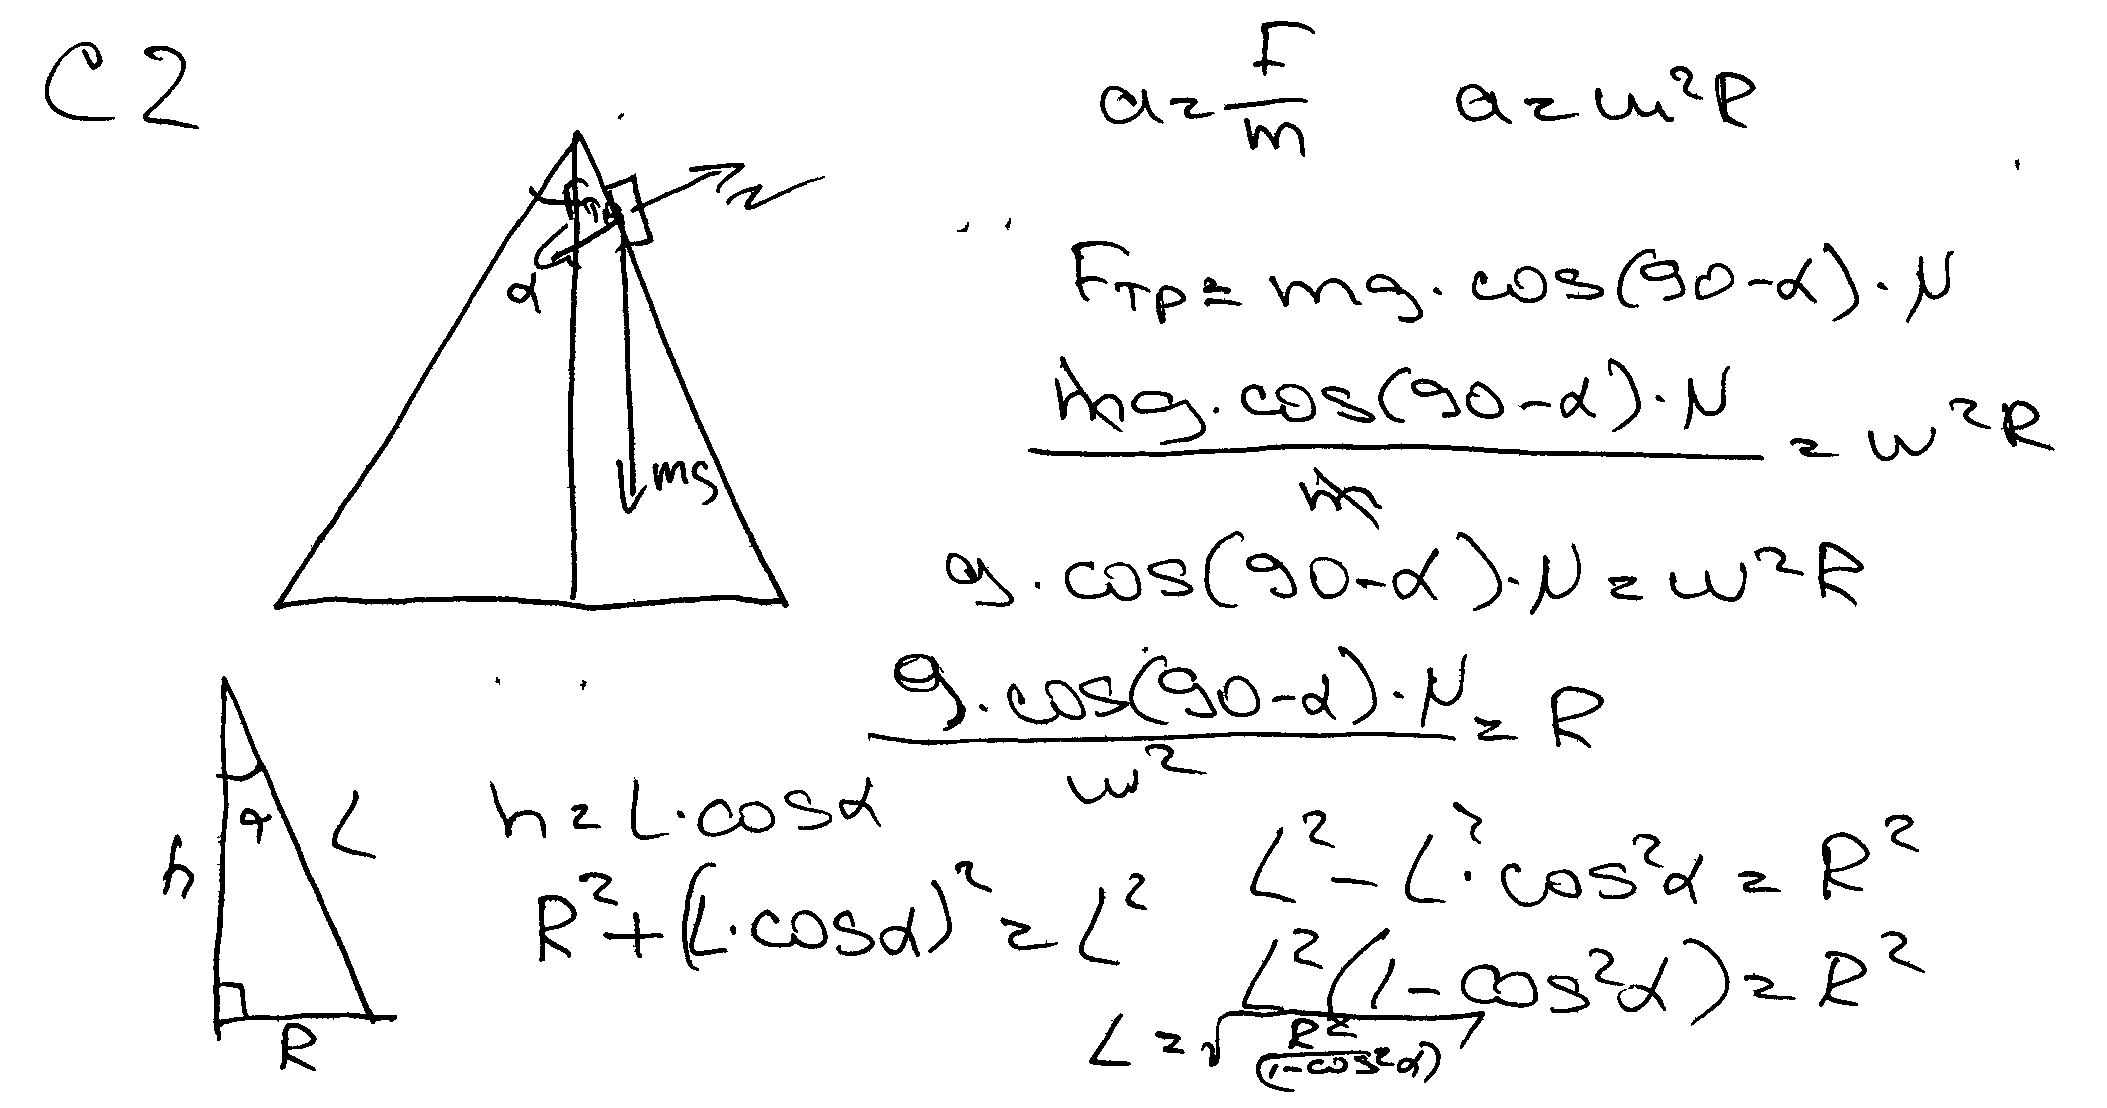 C2
a = F/m   a = ω²R
Fтр
N
α
mg
Fтр = mg · cos(90-α) · μ
mg · cos(90-α) · μ / m = ω²R
g · cos(90-α) · μ = ω²R
g · cos(90-α) · μ / ω² = R
α
L
h
R
h = L · cosα
R² + (L · cosα)² = L²
L² - L² · cos²α = R²
L²(1 - cos²α) = R²
L = √(R² / (1-cos²α))